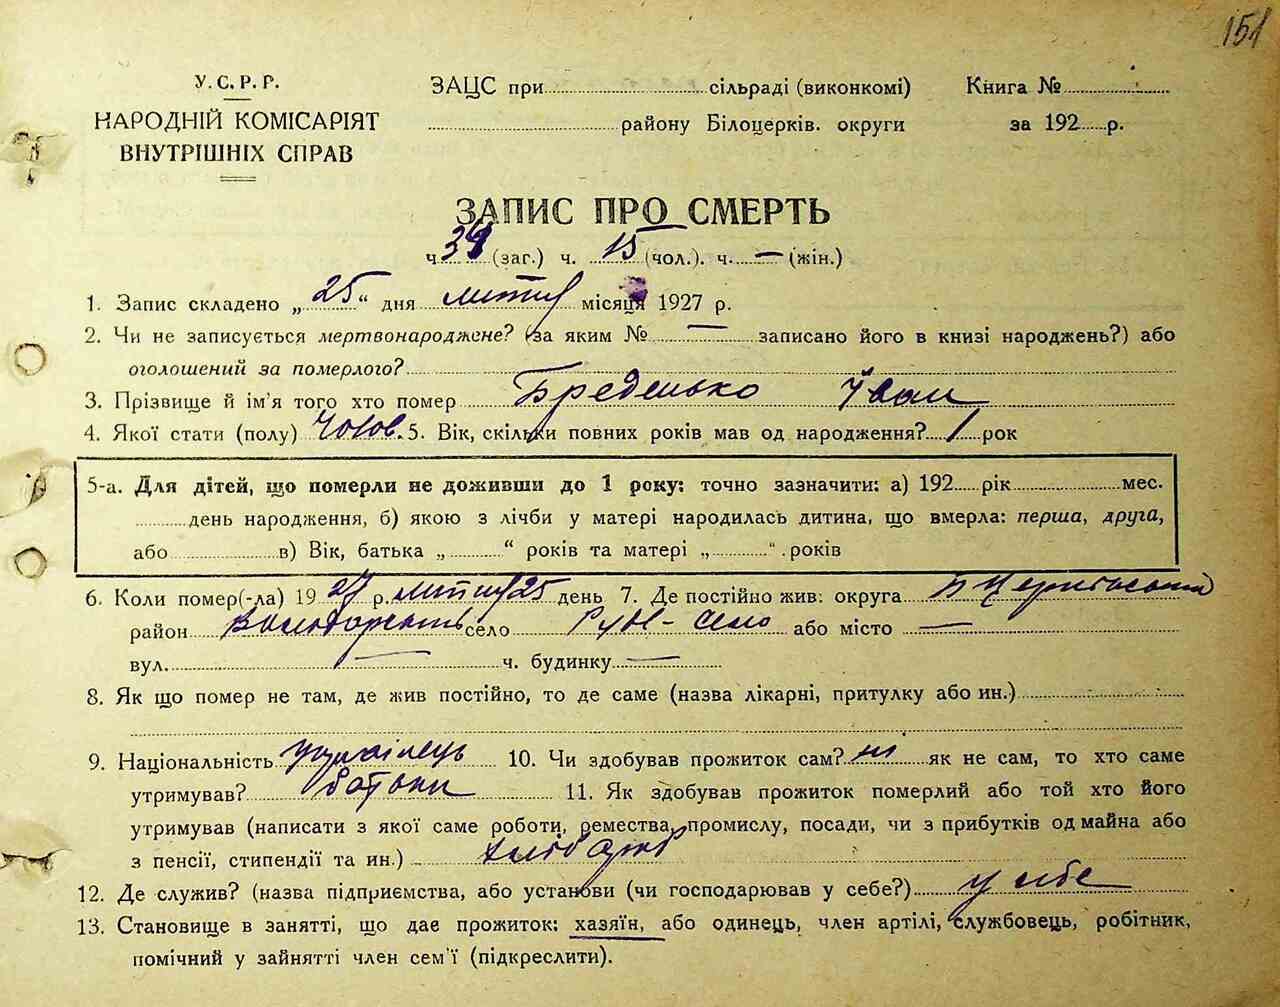 151
У.С.Р.Р.
НАРОДНІЙ КОМІСАРІЯТ
ВНУТРІШНІХ СПРАВ
ЗАЦС при сільраді (виконкомі)
району Білоцерків. округи
Книга №
за 192 р.
ЗАПИС ПРО СМЕРТЬ
ч. 39 (заг.) ч. 15 (чол.). ч. — (жін.)
1. Запис складено „ 25 “ дня лютня місяця 1927 р.
2. Чи не записується мертвонароджене? (за яким № — записано його в книзі народжень?) або
оголошений за померлого?
3. Прізвище й ім'я того хто помер Бределько Іван
4. Якої стати (полу) Чолов. 5. Вік, скільки повних років мав од народження? 1 рок
5-а. Для дітей, що померли не доживши до 1 року: точно зазначити: а) 192 рік мес.
день народження, б) якою з лічби у матері народилась дитина, що вмерла: перша, друга,
або в) Вік, батька „ “ років та матері „ “ . років
6. Коли помер(-ла) 19 27 р. лютня 25 день 7. Де постійно жив: округа
район село Руд-село або місто —
вул. — ч. будинку —
8. Як що помер не там, де жив постійно, то де саме (назва лікарні, притулку або ин.)
9. Національність українець 10. Чи здобував прожиток сам? ні як не сам, то хто саме
утримував? батьки 11. Як здобував прожиток померлий або той хто його
утримував (написати з якої саме роботи, ремества, промислу, посади, чи з прибутків од майна або
з пенсії, стипендії та ин.) хлібороб
12. Де служив? (назва підприємства, або установи (чи господарював у себе?) у себе
13. Становище в занятті, що дає прожиток: хазяїн, або одинець, член артілі, службовець, робітник,
помічний у зайнятті член сем'ї (підкреслити).